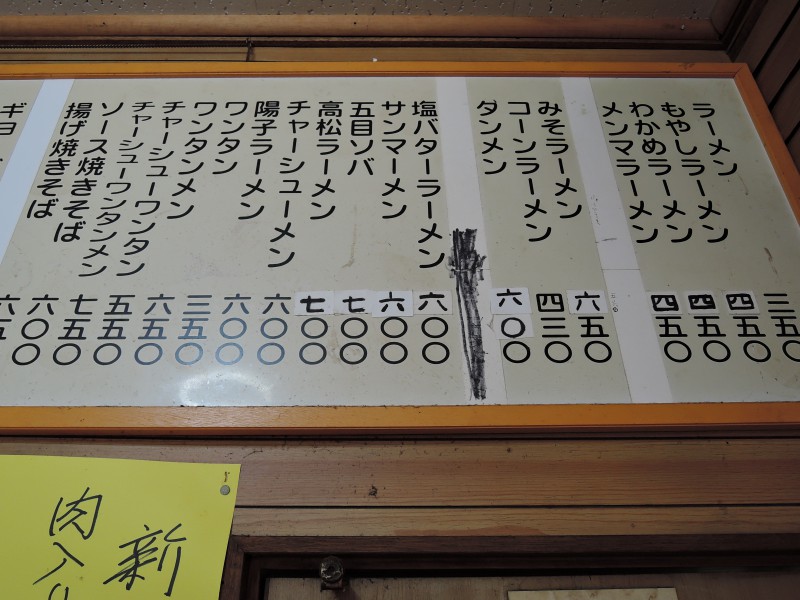 ラーメン 三五〇
もやしラーメン 四五〇
わかめラーメン 四五〇
メンマラーメン 四五〇
みそラーメン 六五〇
コーンラーメン 四三〇
ダンメン 六〇〇
塩バターラーメン 六〇〇
サンマーメン 六〇〇
五目ソバ 七〇〇
高松ラーメン 七〇〇
チャーシューメン 六〇〇
陽子ラーメン 六〇〇
ワンタン 三五〇
ワンタンメン 六五〇
チャーシューワンタン 五五〇
チャーシューワンタンメン 七五〇
ソース焼きそば 六〇〇
揚げ焼きそば 六五
ギョ
新
肉入り